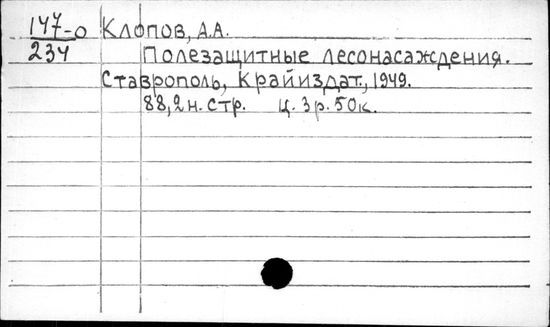 147-о Клопов, А.А.
234 Полезащитные лесонасаждения.
Ставрополь, Крайиздат, 1949.
88,2н.стр. Ц. 3р. 50к.